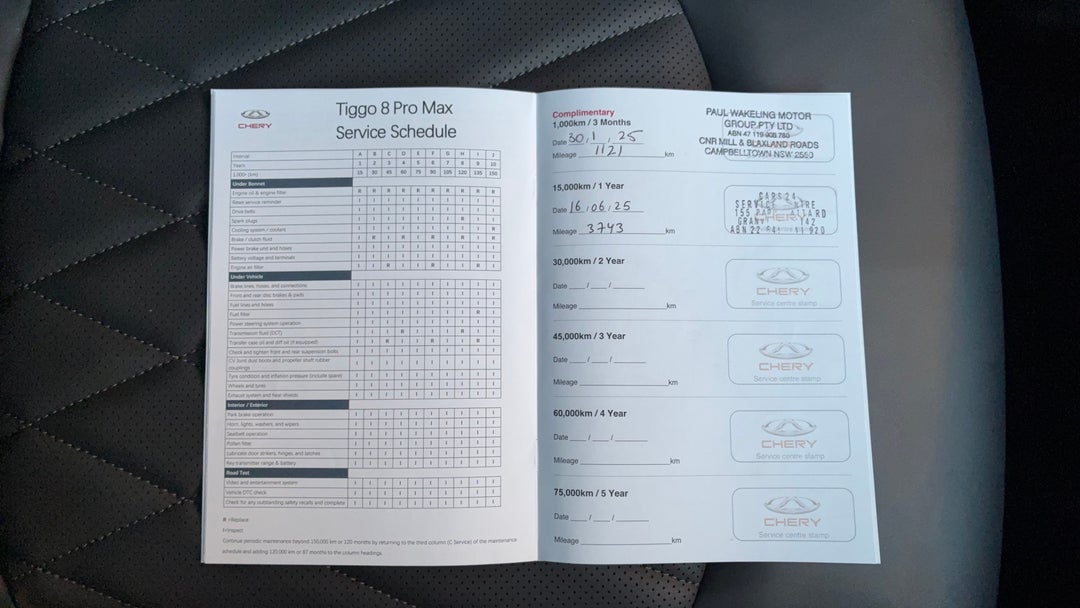 CHERY
Tiggo 8 Pro Max
Service Schedule
Interval A B C D E F G H I J
Years 1 2 3 4 5 6 7 8 9 10
1,000× (km) 15 30 45 60 75 90 105 120 135 150
Under Bonnet
Engine oil & engine filter R R R R R R R R R R
Reset service reminder I I I I I I I I I I
Drive belts I I I I I I I I I I
Spark plugs
Cooling system / coolant
Brake / clutch fluid
Power brake unit and hoses I I I I I I I I I I
Battery voltage and terminals I I I I I I I I I I
Engine air filter I I R I I R I I R I
Under Vehicle
Brake lines, hoses, and connections I I I I I I I I I I
Front and rear disc brakes & pads I I I I I I I I I I
Fuel lines and hoses I I I I I I I I I I
Fuel filter
Power steering system operation I I I I I I I I I I
Transmission fluid (DCT) I I I R I I I R I I
Transfer case oil and diff oil (if equipped) I I R I I R I I R I
Check and tighten front and rear suspension bolts I I I I I I I I I I
CV Joint dust boots and propeller shaft rubber
couplings I I I I I I I I I I
Tyre condition and inflation pressure (include spare) I I I I I I I I I I
Wheels and tyres I I I I I I I I I I
Exhaust system and heat shields I I I I I I I I I I
Interior / Exterior
Park brake operation I I I I I I I I I I
Horn, lights, washers, and wipers I I I I I I I I I I
Seatbelt operation I I I I I I I I I I
Pollen filter I I I I I I I I I I
Lubricate door strikers, hinges, and latches I I I I I I I I I I
Key transmitter range & battery I I I I I I I I I I
Road Test
Video and entertainment system I I I I I I I I I I
Vehicle DTC check I I I I I I I I I I
Check for any outstanding safety recalls and complete I I I I I I I I I I
R =Replace
I=Inspect
Continue periodic maintenance beyond 150,000 km or 120 months by returning to the third column (C Service) of the maintenance
schedule and adding 120,000 km or 87 months to the column headings.
Complimentary
1,000km / 3 Months
Date 30, 1, 25
Mileage 1121 km
PAUL WAKELING MOTOR
GROUP PTY LTD
ABN 47 119 908 780
CNR MILL & BLAXLAND ROADS
CAMPBELLTOWN NSW 2560
15,000km / 1 Year
Date 16, 06, 25
Mileage 3743 km
CARS24
155
ABN 22
30,000km / 2 Year
Date __ / __ / ______
Mileage ______ km
CHERY
Service centre stamp
45,000km / 3 Year
Date __ / __ / ______
Mileage ______ km
CHERY
Service centre stamp
60,000km / 4 Year
Date __ / __ / ______
Mileage ______ km
CHERY
Service centre stamp
75,000km / 5 Year
Date __ / __ / ______
Mileage ______ km
CHERY
Service centre stamp